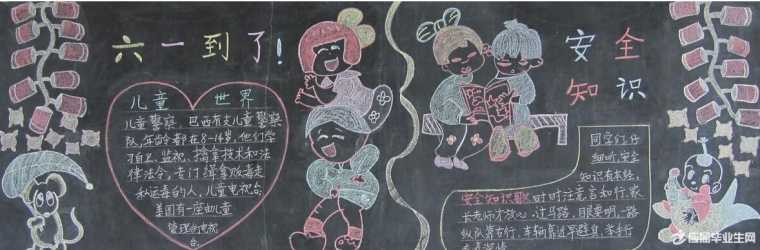 六一到了!
儿童 世界
儿童警察,巴西有支儿童警察
队,年龄都在8-14岁,他们学
习自卫、监视、擒拿技术和法
律法令,专门缉拿贩毒走
私运毒的人,儿童电视台:
美国有一座由儿童
管理的电视
台
安全
知识
同学们仔
细听,安全
知识有本经,
安全知识歌时时注意言和行,家
长老师才放心,过马路,眼要明,一路
纵队靠右行,车辆靠近早避身,
看图毕业生网